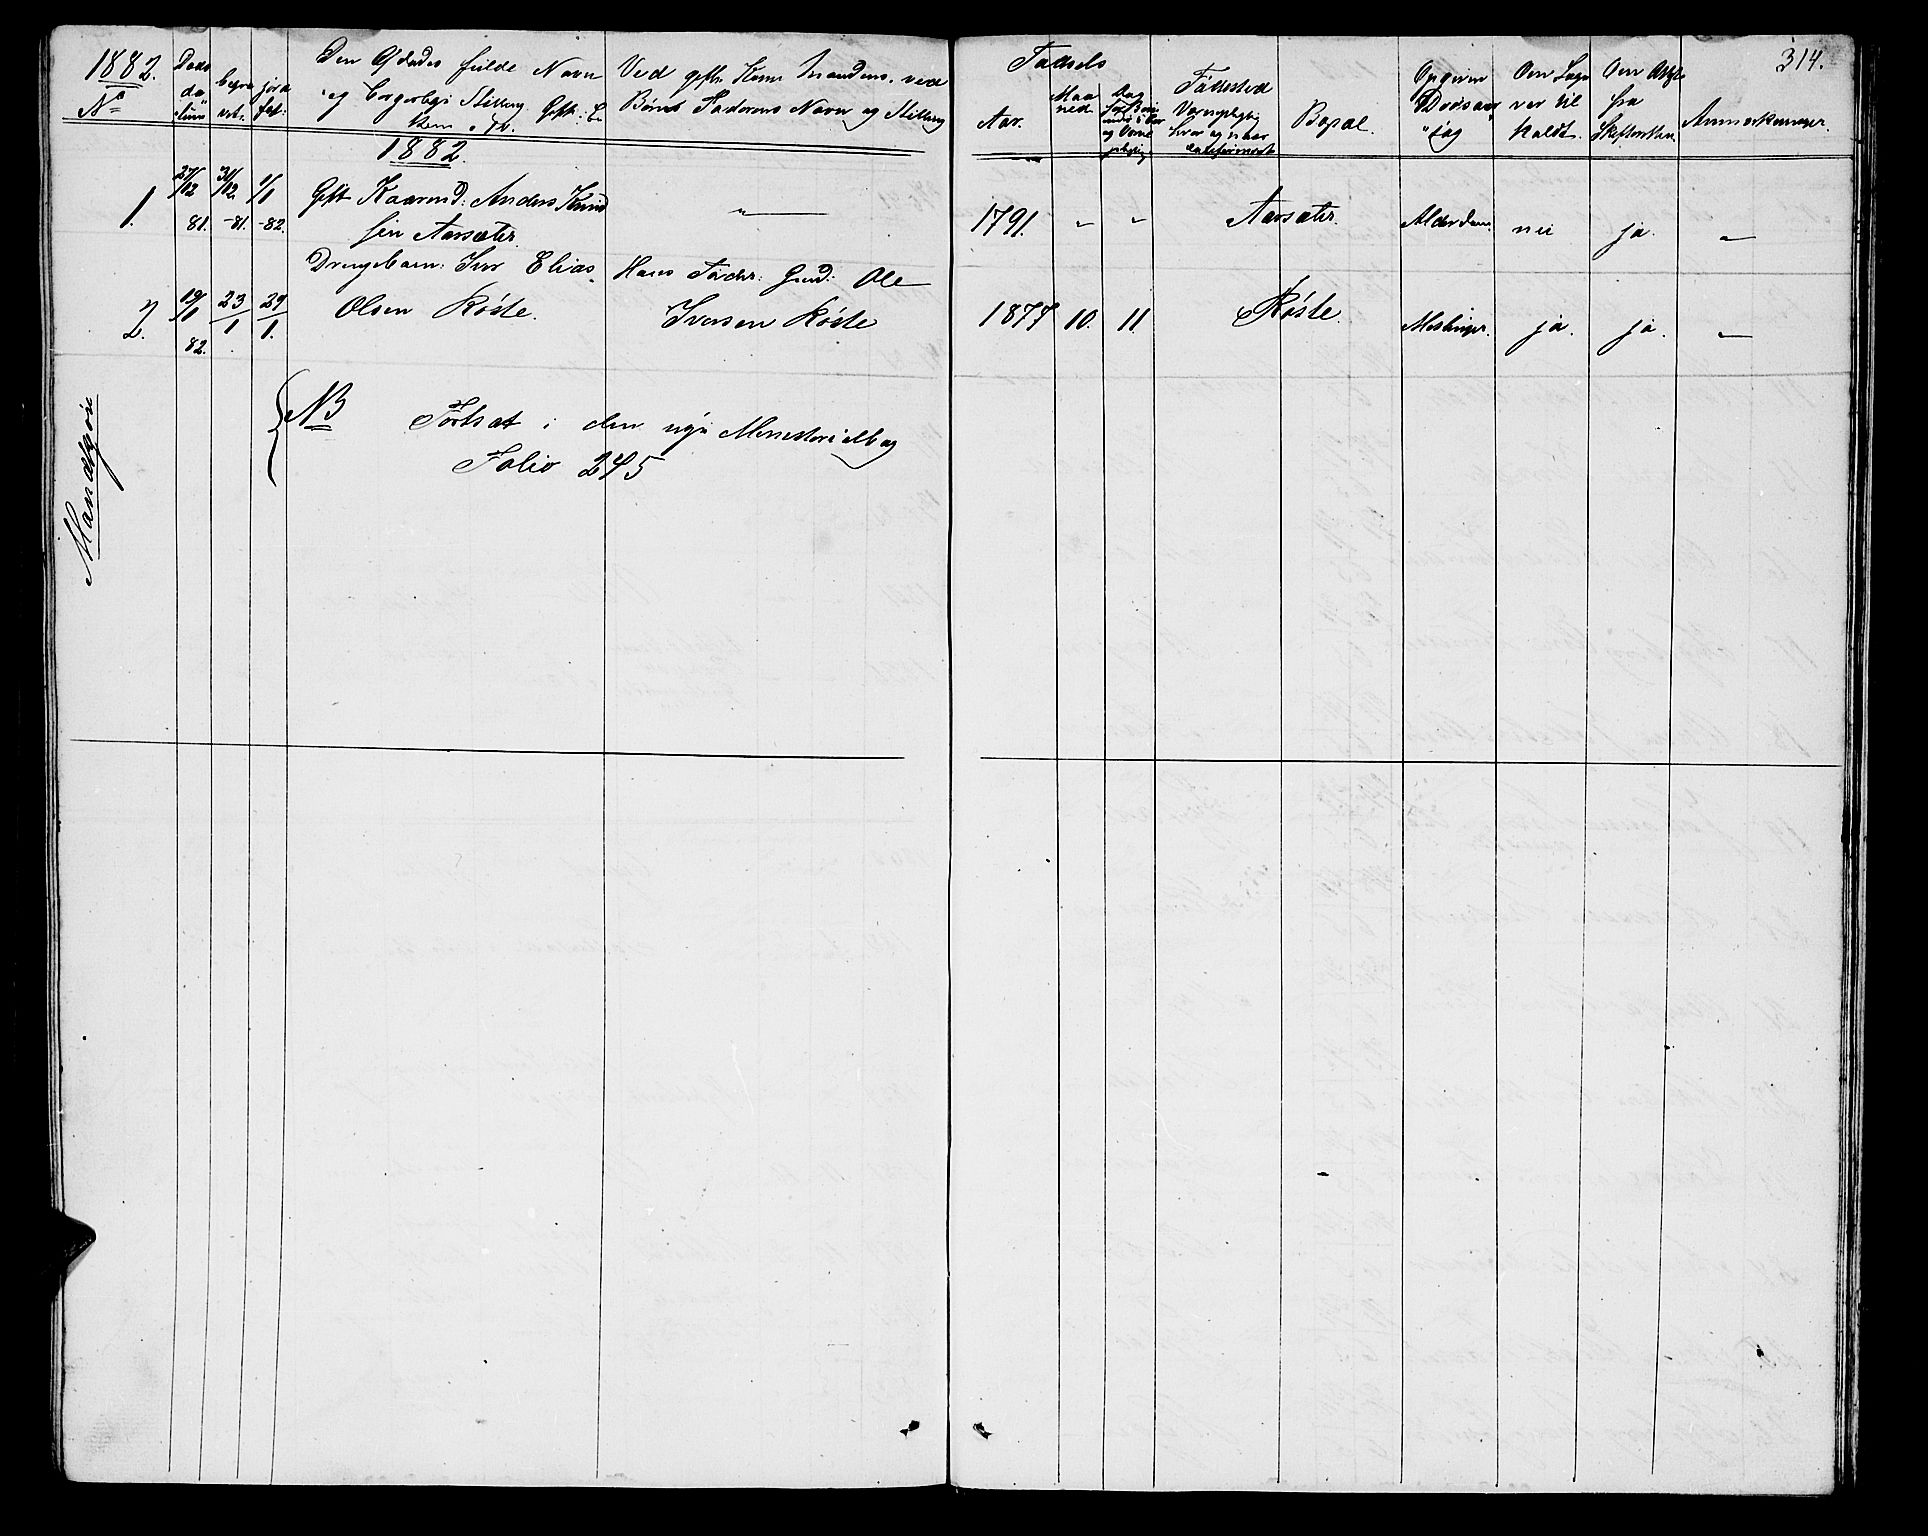 1882.
No
Døds
da
tum
begra
vet.
jord
fæst:
Den Afdødes fulde Navn
og borgerlige Stilling.
Ved gifte Koner Mandens, ved
Børn Faderens Navn og Stilling
Fødsels
Aar.
Maa
ned.
Dag
Fødested
Værnepligtig
hvor og naar
Bopæl.
Opgiven
Dødsaar
sag
Om Læge
var til
kaldt.
Om Attest
fra
Skifteretten
Anmærkninger.
314.
1882.
1.
27/12
81.
31/12
-81.
1/1
-82.
Gift Kaarmd: Anders Knud
sen Aarsæter
"
1791.
"
"
Aarsæter.
Alderdom.
nei
ja.
"
2.
19/1
82.
23/1
29/1.
Drengebarn: Iver Elias
Olsen Røste.
Hans Fader: Gmd: Ole
Iversen Røste
1877
10.
11
Røste.
Meslinger.
ja.
ja.
"
Mandkjøn
NB
Fortsat i den nye Ministerialbog
Folio 245